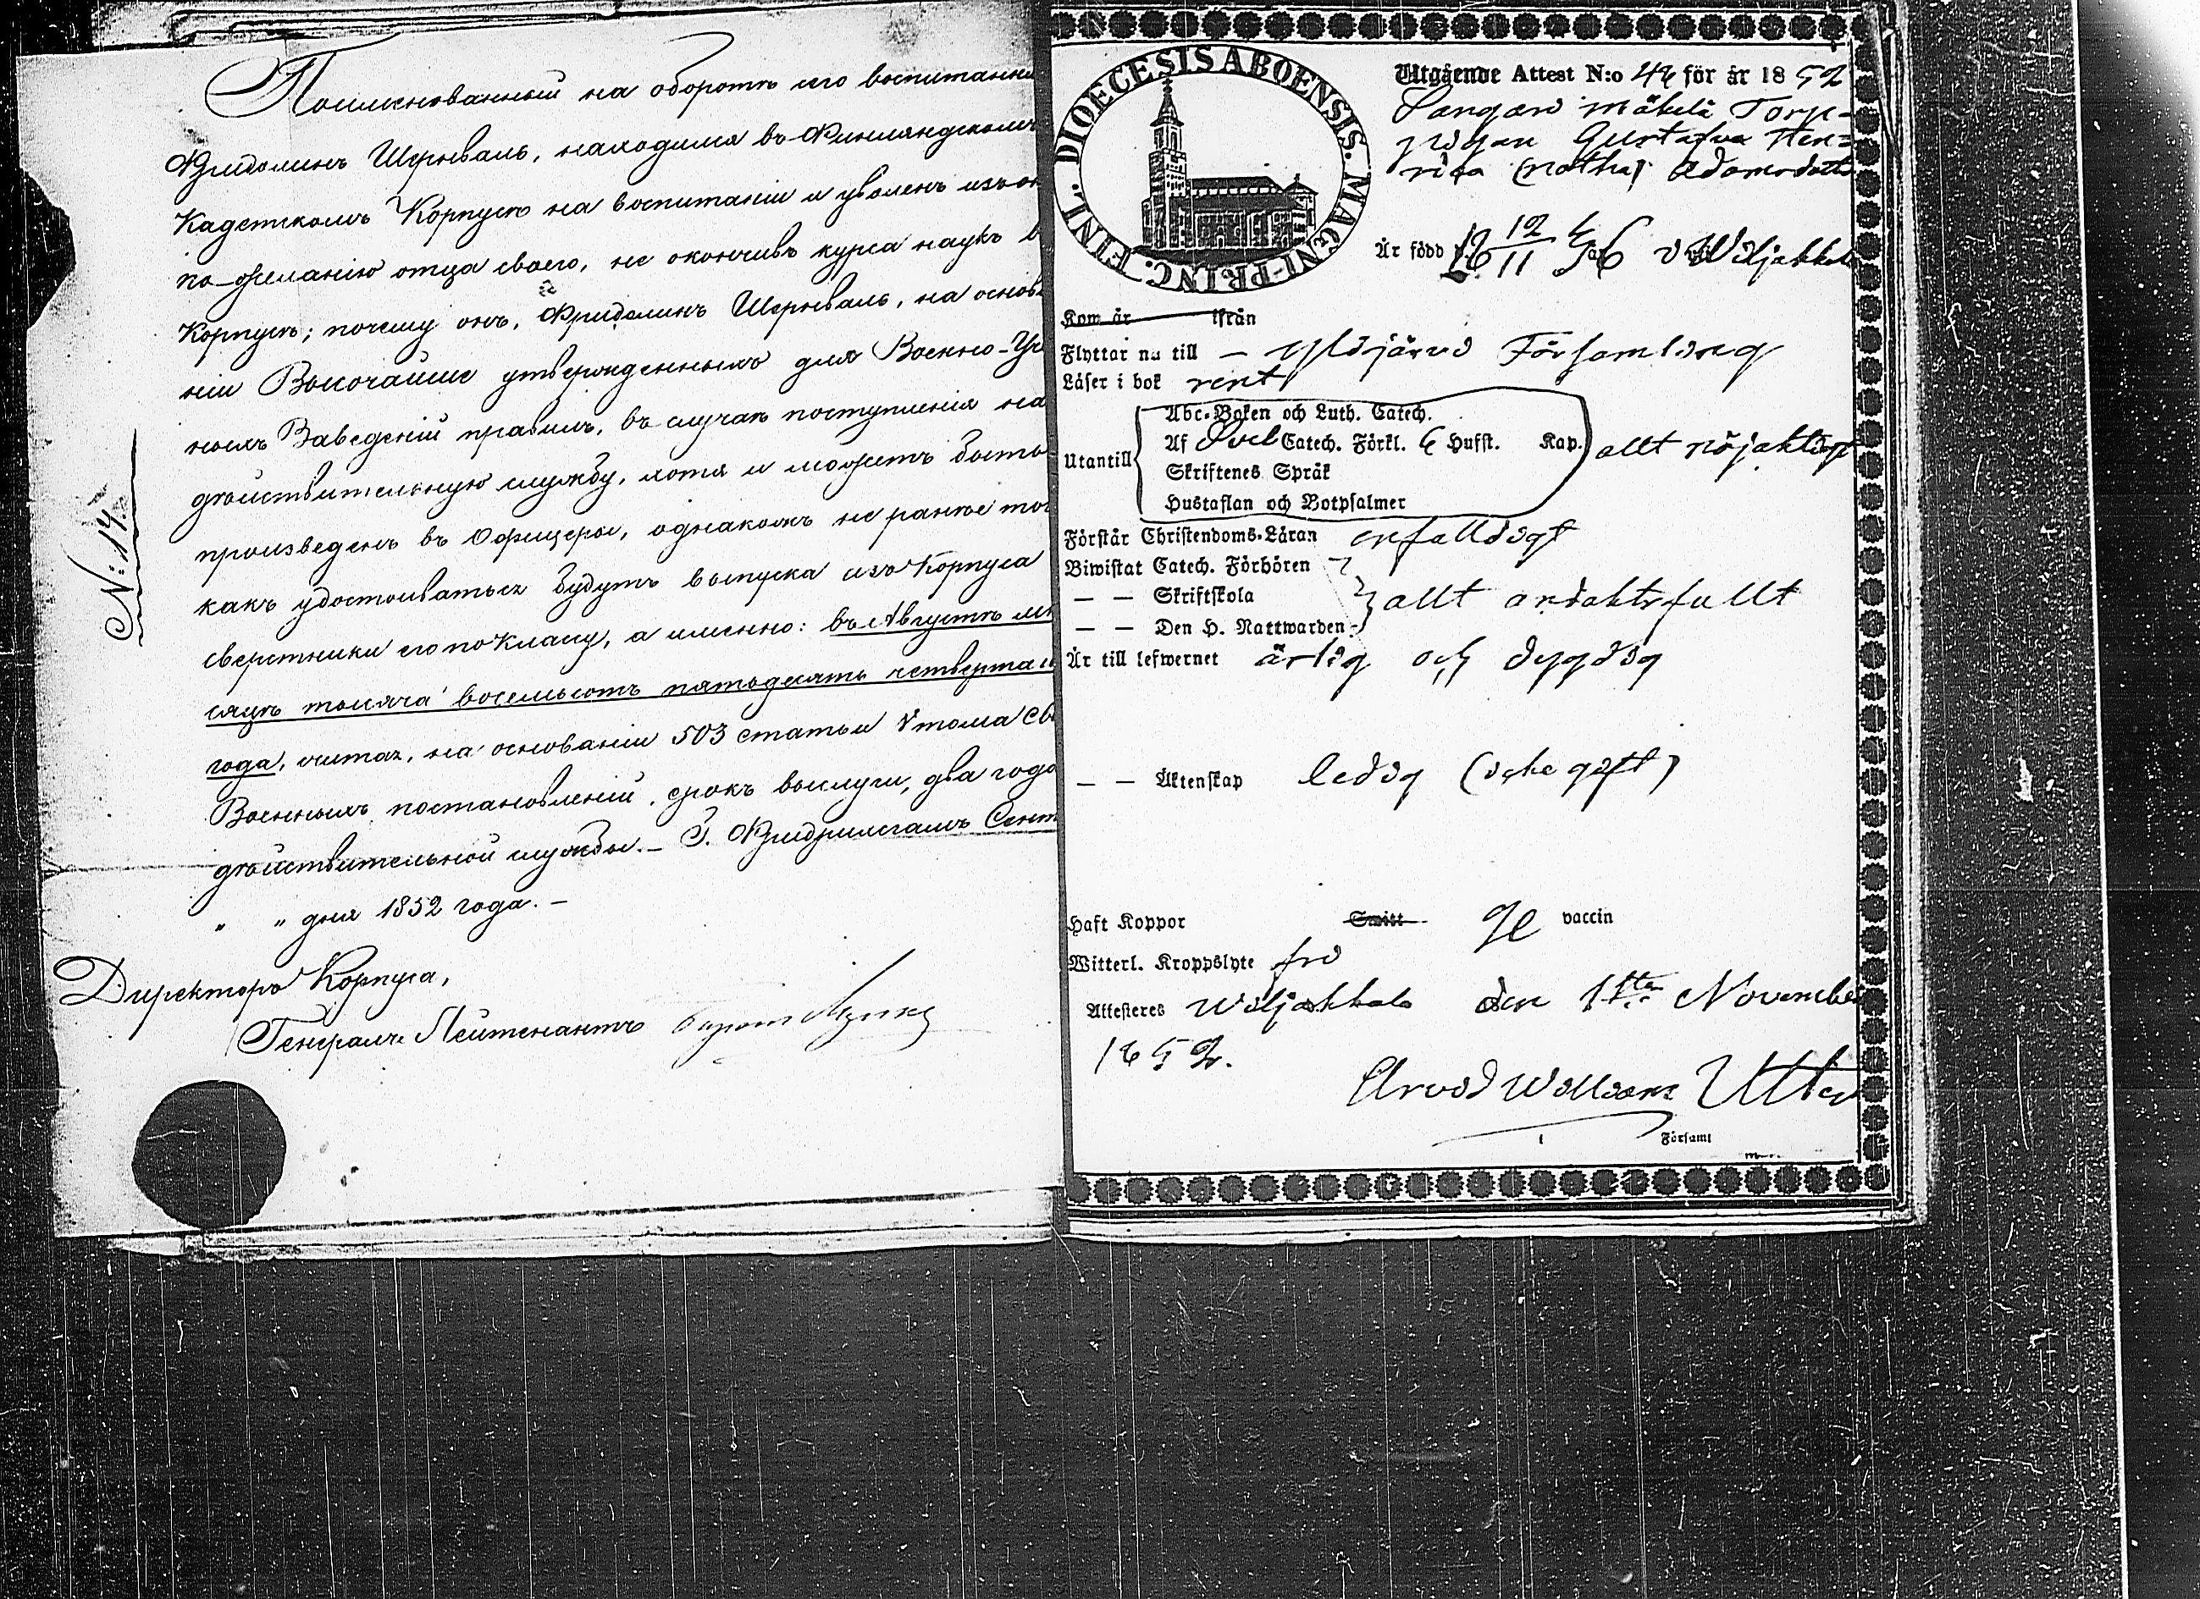 Поименованный на оборотѣ сего воспитанни
Фридолинъ Шернваль, находился въ Финляндскомъ
Кадетскомъ Корпусѣ на воспитаніи и уволенъ изъ он
по желанію отца своего, не окончивъ курса наукъ в
Корпусѣ; почему онъ, Фридолинъ Шернваль, на основа
ніи Высочайше утвержденныхъ для Военно-Уч
ныхъ Заведеній правилъ, въ случаѣ поступленія на
дѣйствительную службу, хотя и можетъ быть
произведенъ въ Офицеры, однакожъ не ранѣе то
какъ удостоиваться будутъ выпуска изъ Корпуса
сверстники его по классу, а именно: въ Августѣ мѣ
сяцѣ тысяча восемьсотъ пятьдесятъ четвертаго
года, считая, на основаніи 503 статьи V тома Св
Военныхъ постановленій, срокъ выслуги, два года
дѣйствительной службы. – Г. Фридрихсгамъ Сент
" " дня 1852 года. –
Директоръ Корпуса,
Генералъ Лейтенантъ
N: 14.
DIOECESIS ABOENSIS. MAGNI-PRINC. FINL.
Utgående Attest N:o 44 för år 1852
Sangari Mäkelä Torp-
pigan Gustafva Hen=
rica (notha) Adamsdotter
Är född 18 12/11 26 i Wiljakkala
Kom är ifrån
Flyttar nu till – Ylöjärvi Församling
Läser i bok rent
Utantill
Abc-Boken och Luth. Catech.
Af Svel Catech. Förkl. 6 Hufst. Kap.
Skriftenes Språk
Hustaflan och Botpsalmer
allt nöjaktigt
Förstår Christendoms-Läran enfalldigt
Biwistat Catech. Förhören
— — Skriftskola
— — Den H. Nattwarden
allt andaktsfullt
Är till lefwernet ärlig och dygdig
— — Äktenskap ledig (icke gift)
Haft Koppor Smitt vaccin
Witterl. Kroppslyte fri
Attesteres Wiljakkala den 1sta November
1852.
Arvid William Utter
Församl